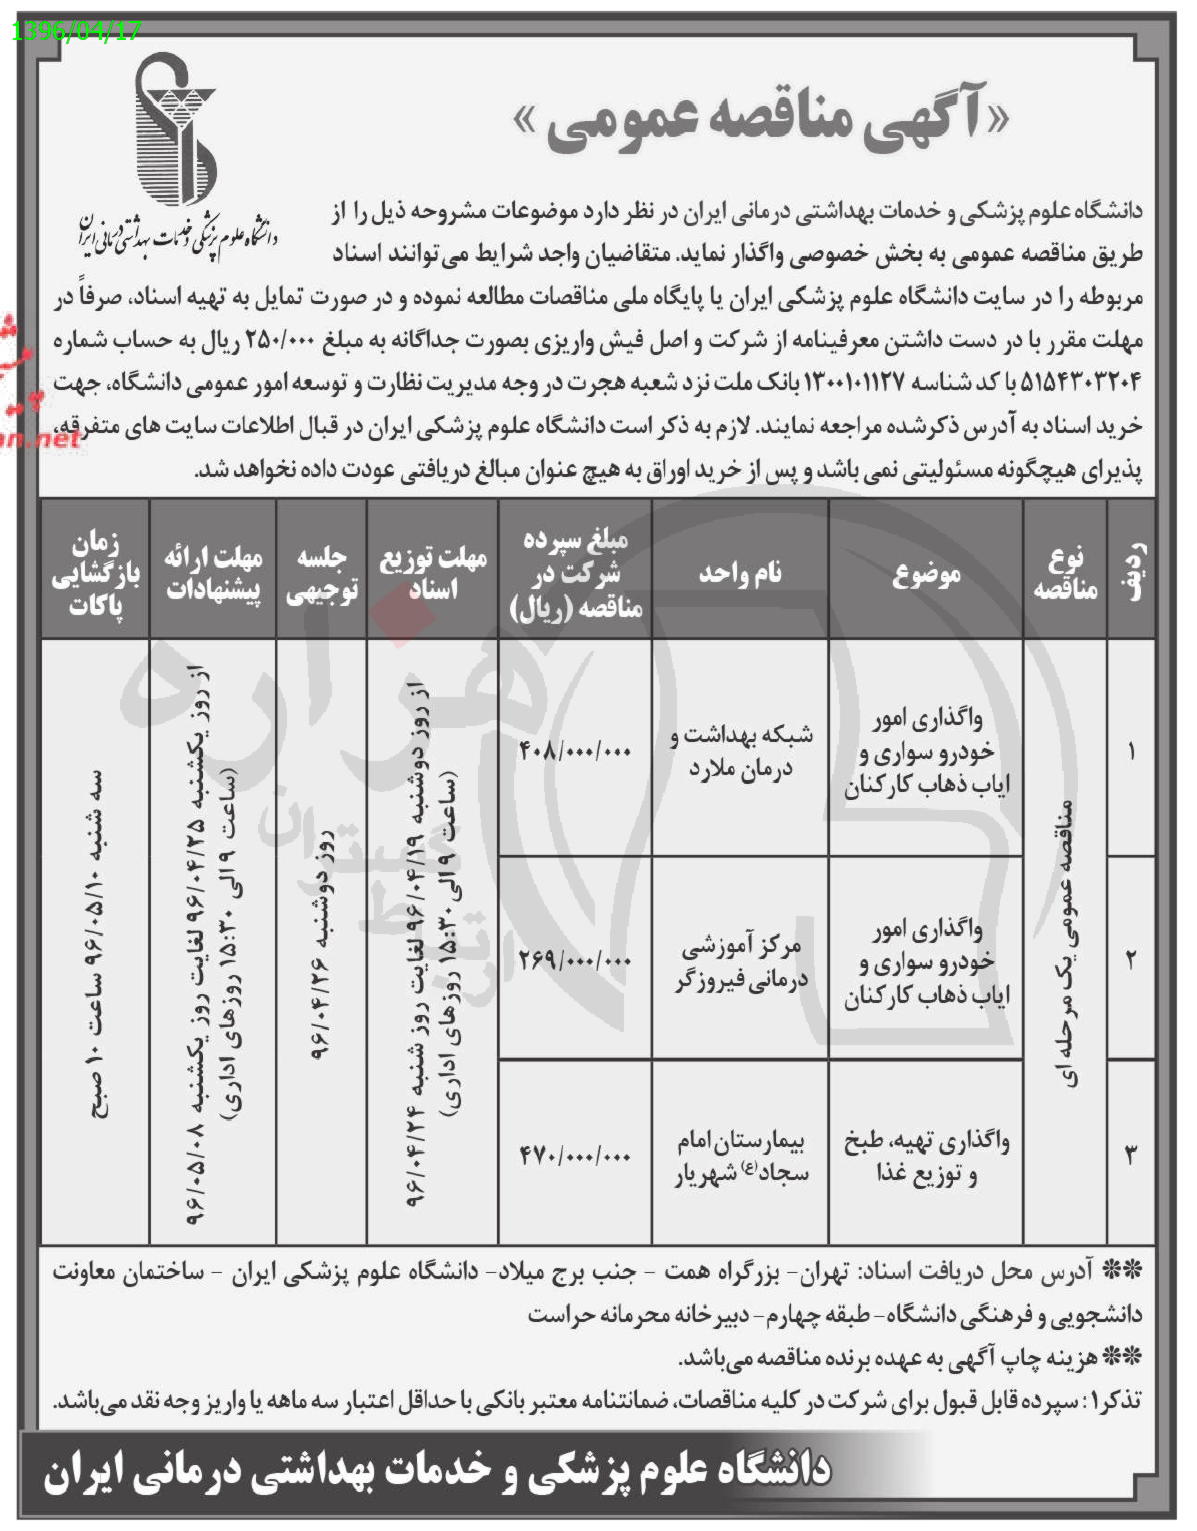 1396/04/17
«آگهی مناقصه عمومی»
دانشگاه علوم پزشکی و خدمات بهداشتی درمانی ایران
دانشگاه علوم پزشکی و خدمات بهداشتی درمانی ایران در نظر دارد موضوعات مشروحه ذیل را از
طریق مناقصه عمومی به بخش خصوصی واگذار نماید. متقاضیان واجد شرایط می‌توانند اسناد
مربوطه را در سایت دانشگاه علوم پزشکی ایران یا پایگاه ملی مناقصات مطالعه نموده و در صورت تمایل به تهیه اسناد، صرفاً در
مهلت مقرر با در دست داشتن معرفینامه از شرکت و اصل فیش واریزی بصورت جداگانه به مبلغ ۲۵۰/۰۰۰ ریال به حساب شماره
۵۱۵۴۳۰۳۲۰۴ با کد شناسه ۱۳۰۰۱۰۱۱۲۷ بانک ملت نزد شعبه هجرت در وجه مدیریت نظارت و توسعه امور عمومی دانشگاه، جهت
خرید اسناد به آدرس ذکرشده مراجعه نمایند. لازم به ذکر است دانشگاه علوم پزشکی ایران در قبال اطلاعات سایت های متفرقه،
پذیرای هیچگونه مسئولیتی نمی باشد و پس از خرید اوراق به هیچ عنوان مبالغ دریافتی عودت داده نخواهد شد.
an.net
ردیف
نوع
مناقصه
موضوع
نام واحد
مبلغ سپرده
شرکت در
مناقصه (ریال)
مهلت توزیع
اسناد
جلسه
توجیهی
مهلت ارائه
پیشنهادات
زمان
بازگشایی
پاکات
۱
مناقصه عمومی یک مرحله ای
واگذاری امور
خودرو سواری و
ایاب ذهاب کارکنان
شبکه بهداشت و
درمان ملارد
۴۰۸/۰۰۰/۰۰۰
از روز دوشنبه ۹۶/۰۴/۱۹ لغایت روز شنبه ۹۶/۰۴/۲۴
(ساعت ۹ الی ۱۵:۳۰ روزهای اداری)
روز دوشنبه ۹۶/۰۴/۲۶
از روز یکشنبه ۹۶/۰۴/۲۵ لغایت روز یکشنبه ۹۶/۰۵/۰۸
(ساعت ۹ الی ۱۵:۳۰ روزهای اداری)
سه شنبه ۹۶/۰۵/۱۰ ساعت ۱۰ صبح
۲
واگذاری امور
خودرو سواری و
ایاب ذهاب کارکنان
مرکز آموزشی
درمانی فیروزگر
۲۶۹/۰۰۰/۰۰۰
۳
واگذاری تهیه، طبخ
و توزیع غذا
بیمارستان امام
سجاد(ع) شهریار
۴۷۰/۰۰۰/۰۰۰
هزاره
گستران
ارتباط
** آدرس محل دریافت اسناد: تهران- بزرگراه همت - جنب برج میلاد- دانشگاه علوم پزشکی ایران - ساختمان معاونت
دانشجویی و فرهنگی دانشگاه- طبقه چهارم- دبیرخانه محرمانه حراست
** هزینه چاپ آگهی به عهده برنده مناقصه می‌باشد.
تذکر۱: سپرده قابل قبول برای شرکت در کلیه مناقصات، ضمانتنامه معتبر بانکی با حداقل اعتبار سه ماهه یا واریز وجه نقد می‌باشد.
دانشگاه علوم پزشکی و خدمات بهداشتی درمانی ایران